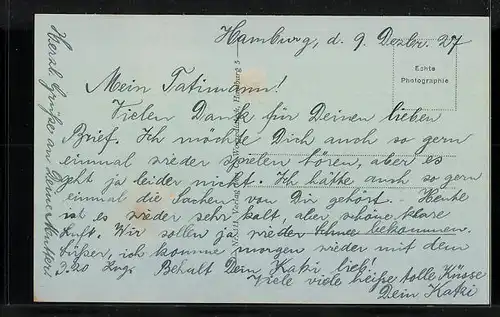 Hamburg, d. 9. Dezbr. 27
Echte
Photographie
Mein Tatimann!
Vielen Dank für Deinen lieben
Brief. Ich möchte Dich auch so gern
einmal wieder spielen hören, aber es
geht ja leider nicht. Ich hätte auch so gern
einmal die Sachen von Dir gehört. Heute
ist es wieder sehr kalt, aber schöne klare
Luft. Wir sollen ja wieder Schnee bekommen.
ich komme morgen wieder mit dem
3.20 Zug. Behalt Dein Katzi lieb!
Viele viele heiße tolle Küsse
Dein Katzi
Herzl. Grüße an Deine Mutter!
Verlag Hamburg 5